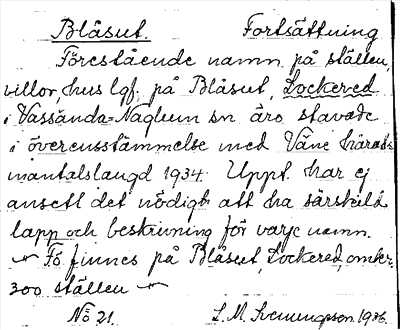 Blåsut. Fortsättning
Förestående namn på ställen,
villor, hus lgf. på Blåsut, Lockered
i Vassända-Naglum sn äro stavade
i överensstämmelse med Väne härads
mantalslängd 1934. Uppt. har ej
ansett det nödigt att ha särskild
lapp och beskrivning för varje namn.
Fö finnes på Blåsut, Lockered, omkr.
300 ställen
No 21. L. M. Svenungson. 1936.